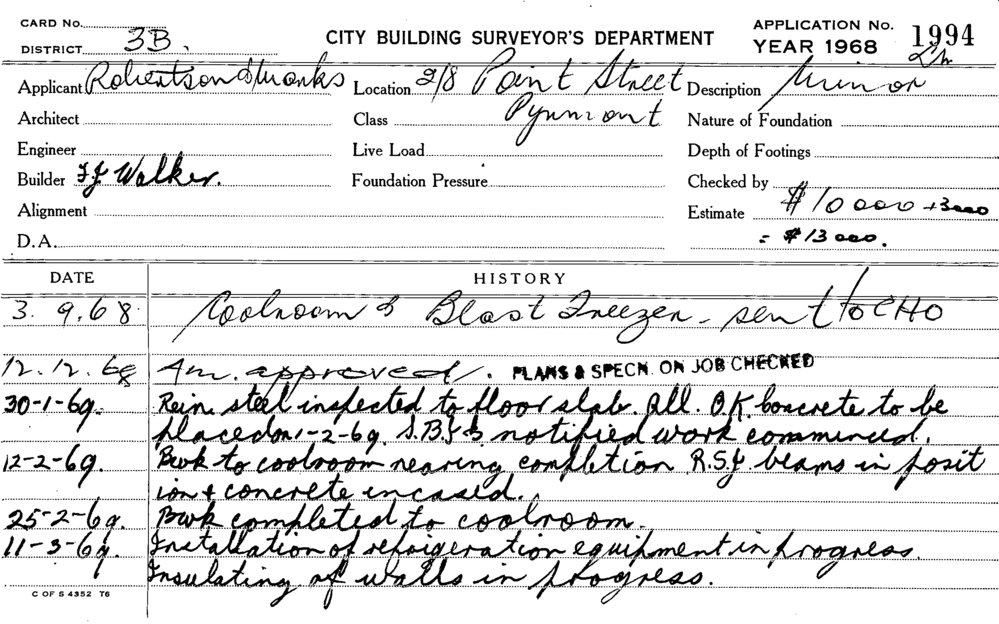 CARD No.
DISTRICT 3B.
CITY BUILDING SURVEYOR'S DEPARTMENT
APPLICATION No. 1994
YEAR 1968
Applicant Robertson & Monks Location 2/8 Point Street Description Minor
Architect Class Pyrmont Nature of Foundation
Engineer Live Load Depth of Footings
Builder F J Walker. Foundation Pressure Checked by
Alignment Estimate $10000 +3000
D.A. = $13000.
DATE HISTORY
3. 9. 68 Coolroom & Blast Freezer - sent to CHO
12.12.68 Am. approved. PLANS & SPECN. ON JOB CHECKED
30-1-69. Rein. steel inspected to floor slab. All. O.K. concrete to be
placed on 1-2-69. notified work commenced.
12-2-69. Bwk to coolroom nearing completion R.S.J beams in posit
ion & concrete incased.
25-2-69. Bwk completed to coolroom.
11-3-69. Installation of refrigeration equipment in progress.
Insulating of walls in progress.
C OF S 4352 T6